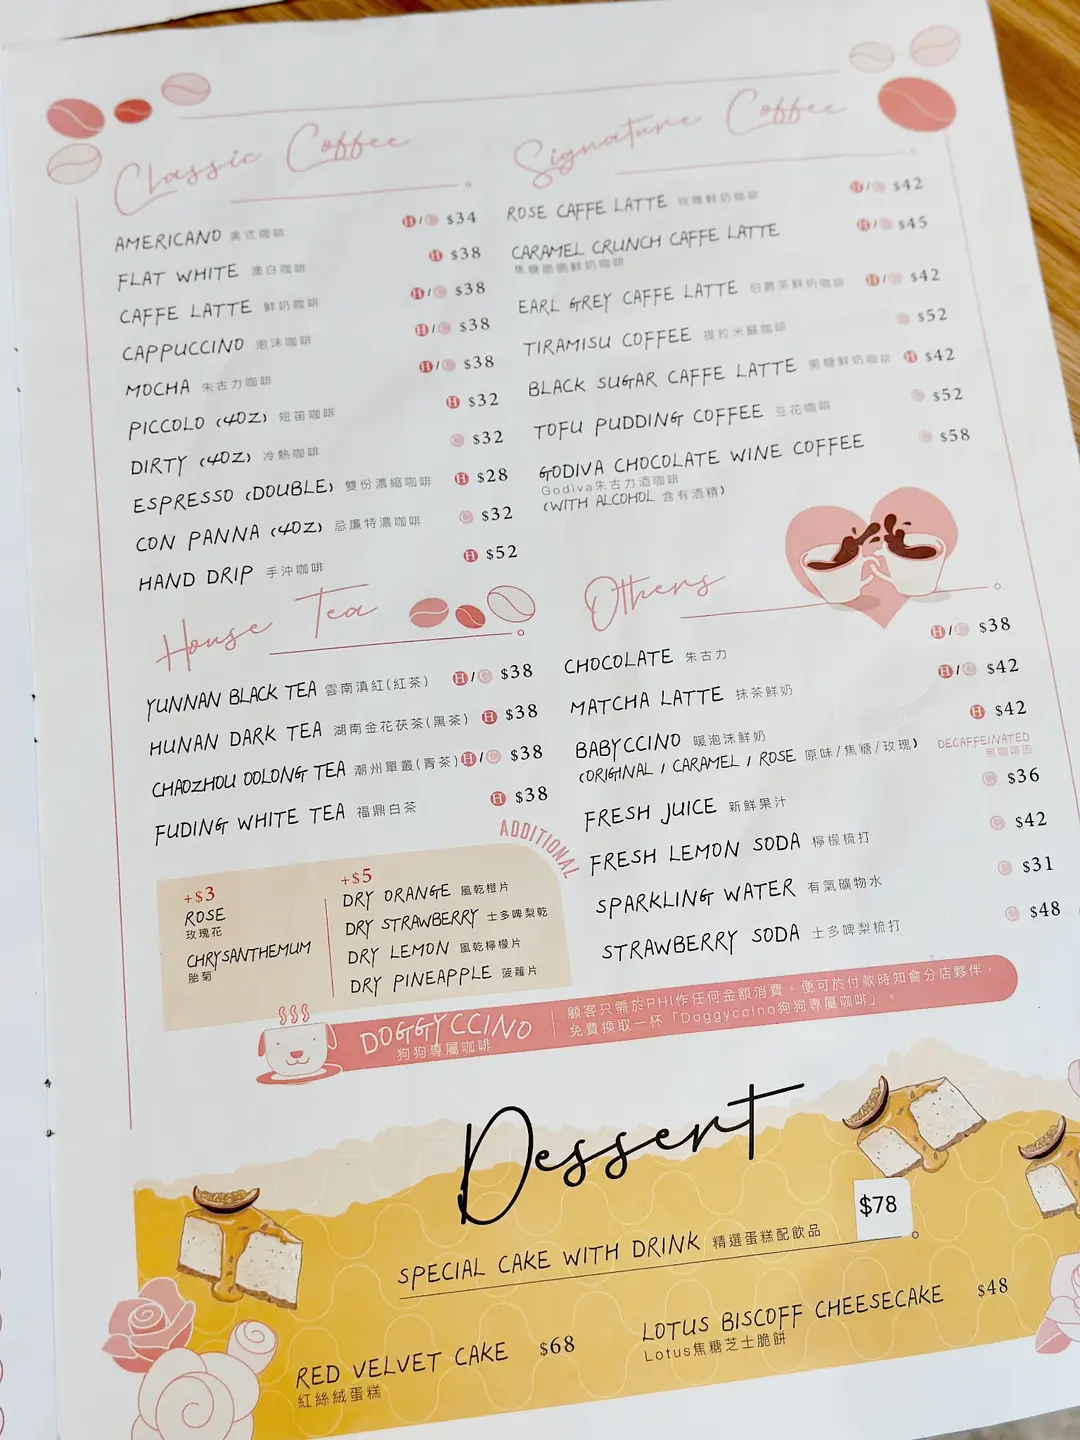 Classic Coffee
AMERICANO 美式咖啡 H/C $34
FLAT WHITE 澳白咖啡 H $38
CAFFE LATTE 鮮奶咖啡 H/C $38
CAPPUCCINO 泡沫咖啡 H/C $38
MOCHA 朱古力咖啡 H/C $38
PICCOLO (4OZ) 短笛咖啡 H $32
DIRTY (4OZ) 冷熱咖啡 C $32
ESPRESSO (DOUBLE) 雙份濃縮咖啡 H $28
CON PANNA (4OZ) 忌廉特濃咖啡 C $32
HAND DRIP 手沖咖啡 H $52
Signature Coffee
ROSE CAFFE LATTE 玫瑰鮮奶咖啡 H/C $42
CARAMEL CRUNCH CAFFE LATTE H/C $45
焦糖脆脆鮮奶咖啡
EARL GREY CAFFE LATTE 伯爵茶鮮奶咖啡 H/C $42
TIRAMISU COFFEE 提拉米蘇咖啡 C $52
BLACK SUGAR CAFFE LATTE 黑糖鮮奶咖啡 H $42
TOFU PUDDING COFFEE 豆花咖啡 C $52
GODIVA CHOCOLATE WINE COFFEE C $58
Godiva朱古力酒咖啡
(WITH ALCOHOL 含有酒精)
House Tea
YUNNAN BLACK TEA 雲南滇紅(紅茶) H/C $38
HUNAN DARK TEA 湖南金花茯茶(黑茶) H $38
CHAOZHOU OOLONG TEA 潮州單叢(青茶) H/C $38
FUDING WHITE TEA 福鼎白茶 H $38
ADDITIONAL
+$3
ROSE
玫瑰花
CHRYSANTHEMUM
胎菊
+$5
DRY ORANGE 風乾橙片
DRY STRAWBERRY 士多啤梨乾
DRY LEMON 風乾檸檬片
DRY PINEAPPLE 菠蘿片
Others
CHOCOLATE 朱古力 H/C $38
MATCHA LATTE 抹茶鮮奶 H/C $42
BABYCCINO 暖泡沫鮮奶 H $42
(ORIGINAL / CARAMEL / ROSE 原味/焦糖/玫瑰) DECAFFEINATED
無咖啡因
FRESH JUICE 新鮮果汁 C $36
FRESH LEMON SODA 檸檬梳打 C $42
SPARKLING WATER 有氣礦物水 C $31
STRAWBERRY SODA 士多啤梨梳打 C $48
DOGGYCCINO
狗狗專屬咖啡
顧客只需於PHI作任何金額消費，便可於付款時知會分店夥伴，
免費換取一杯「Doggyccino狗狗專屬咖啡」。
Dessert
SPECIAL CAKE WITH DRINK 精選蛋糕配飲品 $78
RED VELVET CAKE $68
紅絲絨蛋糕
LOTUS BISCOFF CHEESECAKE $48
Lotus焦糖芝士脆餅